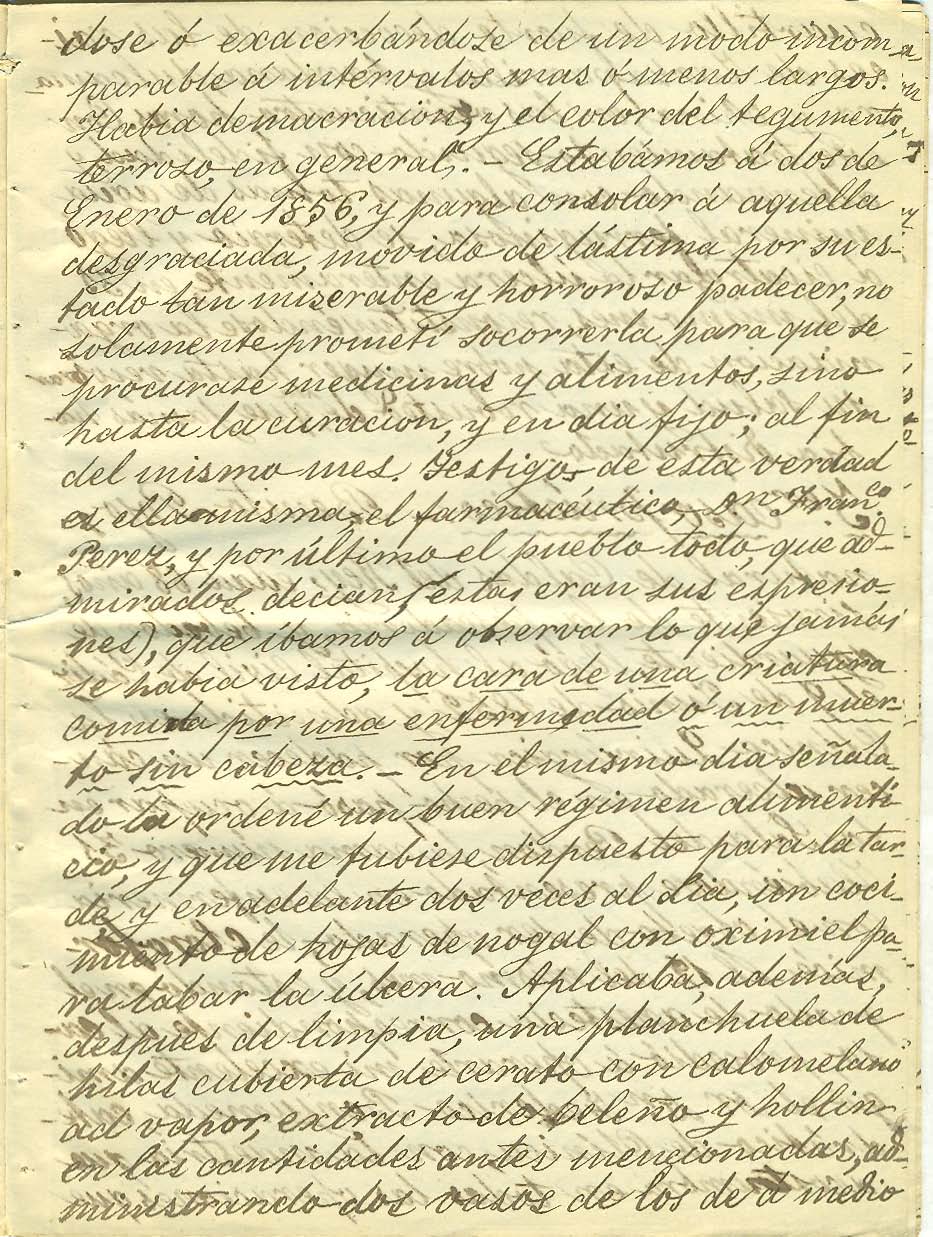 dose ó exacerbándose de un modo incom
parable á intérvalos mas ó menos largos.
Habia demacracion, y el color del tegumento,
terroso, en general". - Estabámos á dos de
Enero de 1856, y para consolar á aquella
desgraciada, movido de lástima por su es-
tado tan miserable y horroroso padecer, no
solamente prometí socorrerla para que se
procurase medicinas y alimentos, sino
hasta la curacion, y en dia fijo; al fin
del mismo mes. Testigos de esta verdad
es ella misma, el farmacéutico, Dn. Franco.
Perez, y por último el pueblo todo, que ad-
mirados decian, (estas eran sus espresio-
nes), que íbamos á observar lo que jamás
se habia visto, la cara de una criatura
comida por una enfermedad ó un muer-
to sin cabeza. - En el mismo dia señala-
do la ordené un buen régimen alimentí-
cio, y que me tubiese dispuesto para la tar-
de, y en adelante dos veces al dia, un coci-
miento de hojas de nogal con oximiel pa-
ra labar la úlcera. Aplicaba, además,
despues de limpia, una planchuela de
hilas cubierta de cerato con calomelanos
ad vapor, extracto de beleño y hollin
en las cantidades antes mencionadas, ad-
ministrando dos vasos de los de á medio